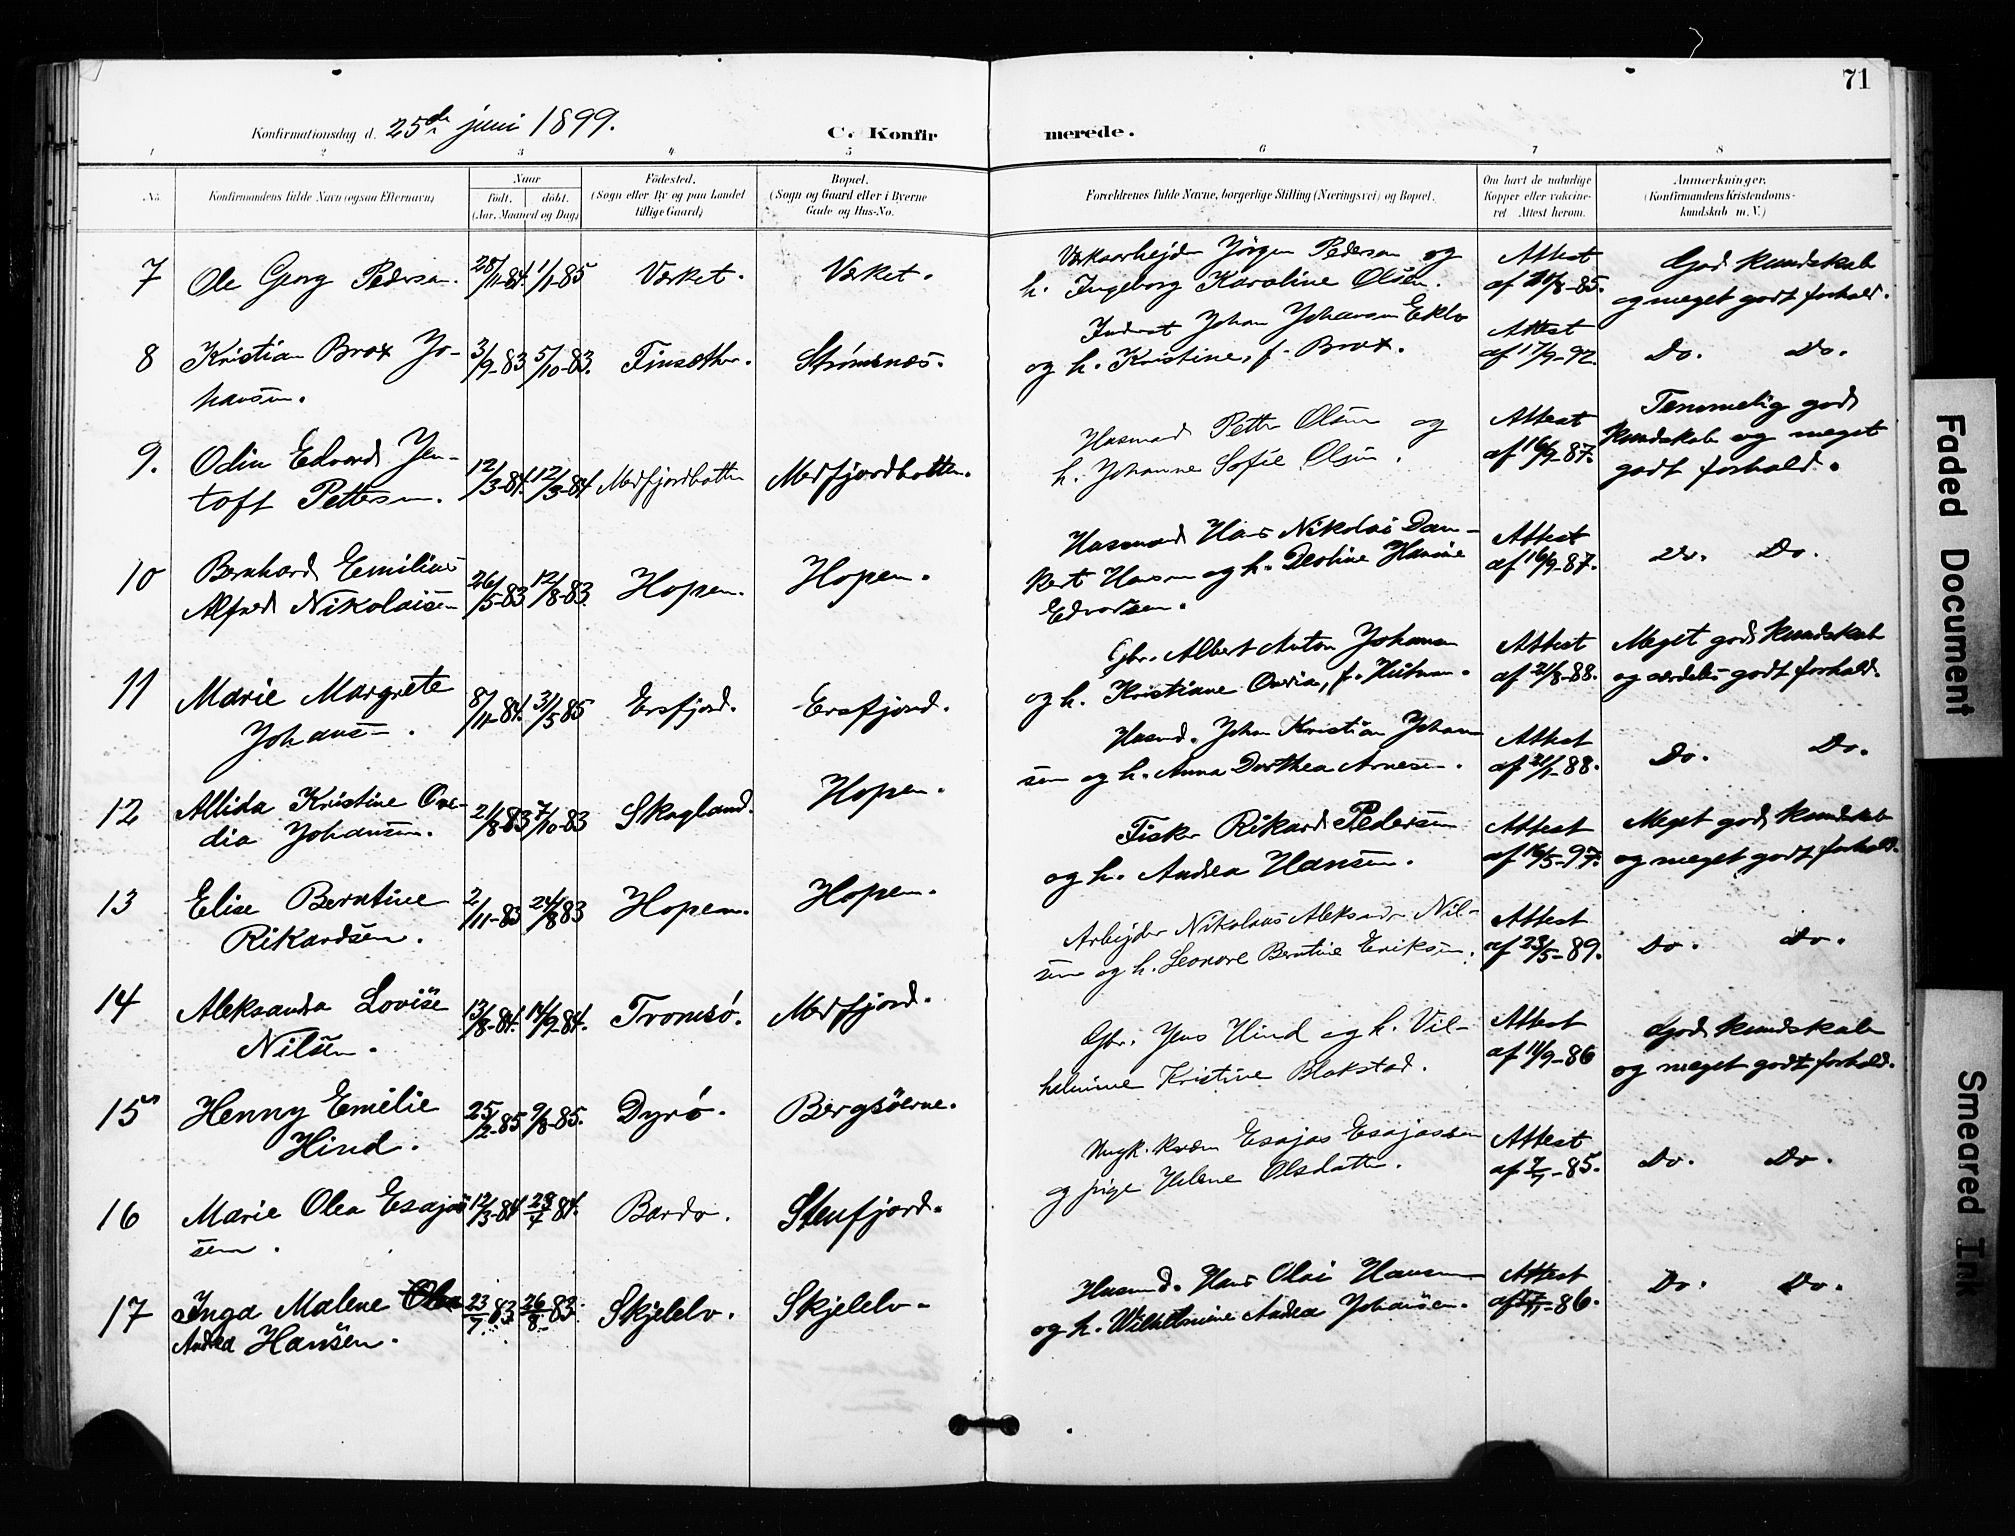 71
Konfirmationsdag d. 25de juni 1899.
C. Konfirmerede.
1 2 3 4 5 6 7 8
No. Konfirmandens fulde Navn (ogsaa Efternavn)
Naar
født. døbt.
(Aar, Maaned og Dag)
Fødested.
(Sogn eller By og paa Landet
tillige Gaard)
Bopæl.
(Sogn og Gaard eller i Byerne
Gade og Hus-No.
Forældrenes fulde Navne, borgerlige Stilling (Næringsvei) og Bopæl.
Om havt de naturlige
Kopper eller vaccine-
ret Attest herom.
Anmærkninger.
(Konfirmandens Kristendoms-
kundskab m. V.)
7 Ole Georg Pedersen. 28/11-84. 1/1-85 Værket. Værket.
Værkarbejder Jørgen Pedersen og
h. Ingeborg Karoline Olsen.
Attest
af 21/8-85.
God kundskab
og meget godt forhold.
8 Kristian Brox Jo-
hansen.
3/9-83 5/10-83. Finsæther. Strømsnes.
Inderst Johan Johansen Eklo
og h. Kristine, f. Brox.
Attest
af 17/9-92.
Do. Do.
9. Odin Edvard Jen-
toft Pettersen.
12/3-84. 12/3-84 Medfjordbotten Medfjordbotten.
Husmand Petter Olsen og
h. Johanne Sofie Olsen.
Attest
af 16/9-87.
Temmelig god
kundskab og meget
godt forhold.
10 Bernhard Emilius
Alfred Nikolaisen
26/5-83 12/8-83. Hopen. Hopen.
Husmand Hans Nikolai Dan-
kert Hansen og h. Hansine
Edvardsen.
Attest
af 16/9-87.
Do. Do.
11 Marie Margrete
Johansen.
8/11-84. 31/5-85 Ersfjord. Ersfjord.
Gbr. Albert Anton Johansen
og h. Kristiane
Attest
af 21/8-88.
Meget god kundskab
og særdeles godt forhold.
12 Allida Kristine Ove-
dia Johansen.
21/8-83 7/10-83 Skogland. Hopen.
Husmd. Johan Kristian Johan
sen og h. Anna Dorthea Arnesen.
Attest
af 21/1-88.
Do. Do.
13 Elise Berntine
Rikardsen.
2/111-83 24/8 83 Hopen. Hopen.
Fisker Rikard Pedersen
og h. Andrea Hansen.
Attest
af 16/5-97.
Meget god kundskab
og meget godt forhold.
14 Aleksandra Lovise
Nilsen.
13/8-84. 14/9-84. Tromsø. Medfjord.
Arbejder Nikolaus Aleksander Nil-
sen og h. Leonore Berntine Eriksen.
Attest
af 23/5-89.
Do. Do.
15 Henny Emilie
Hind.
25/2-85 9/8-85. Dyrø. Bergsøerne.
Gbr. Jens Hind og h. Vil-
helmine Kristine Blakstad.
Attest
af 11/9-86
God kundskab
og meget godt forhold.
16 Marie Olea Esajas
sen.
12/3-84 23/4 84. Bardo. Stenfjord.
Ungk. kvæn Esajas Esajassen
og pige Helene Olsdatter.
Attest
af 7/7-85.
Do. Do.
17 Inga Malene Olea
Andrea Hansen.
23/7 83 26/8-83. Skjelelv. Skjelelv.
Husmd. Hans Olai Hansen
og h. Wilhelmine Andrea Johansen.
Attest
af -86.
Do. Do.
Faded Document
Smeared Ink